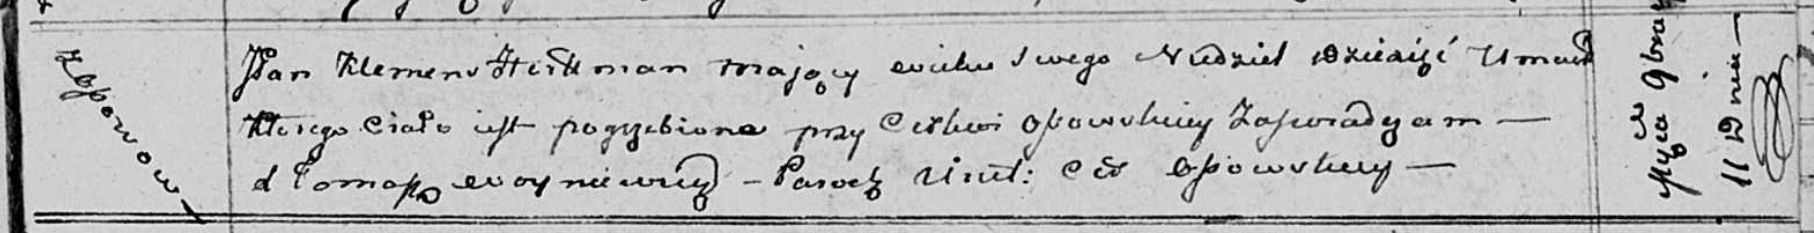 z Opowow
Pan Klemens Hertman mający wieku swego Niedziel dziesięć Umarł
Którego Ciało iest pogrzebione przy Cerkwi Opowskiey Zaświadczam —
X Tomasz Woyniewicz — Paroch Unit: Cer Opowskiey —
Mca 9bra
11 Dnia —